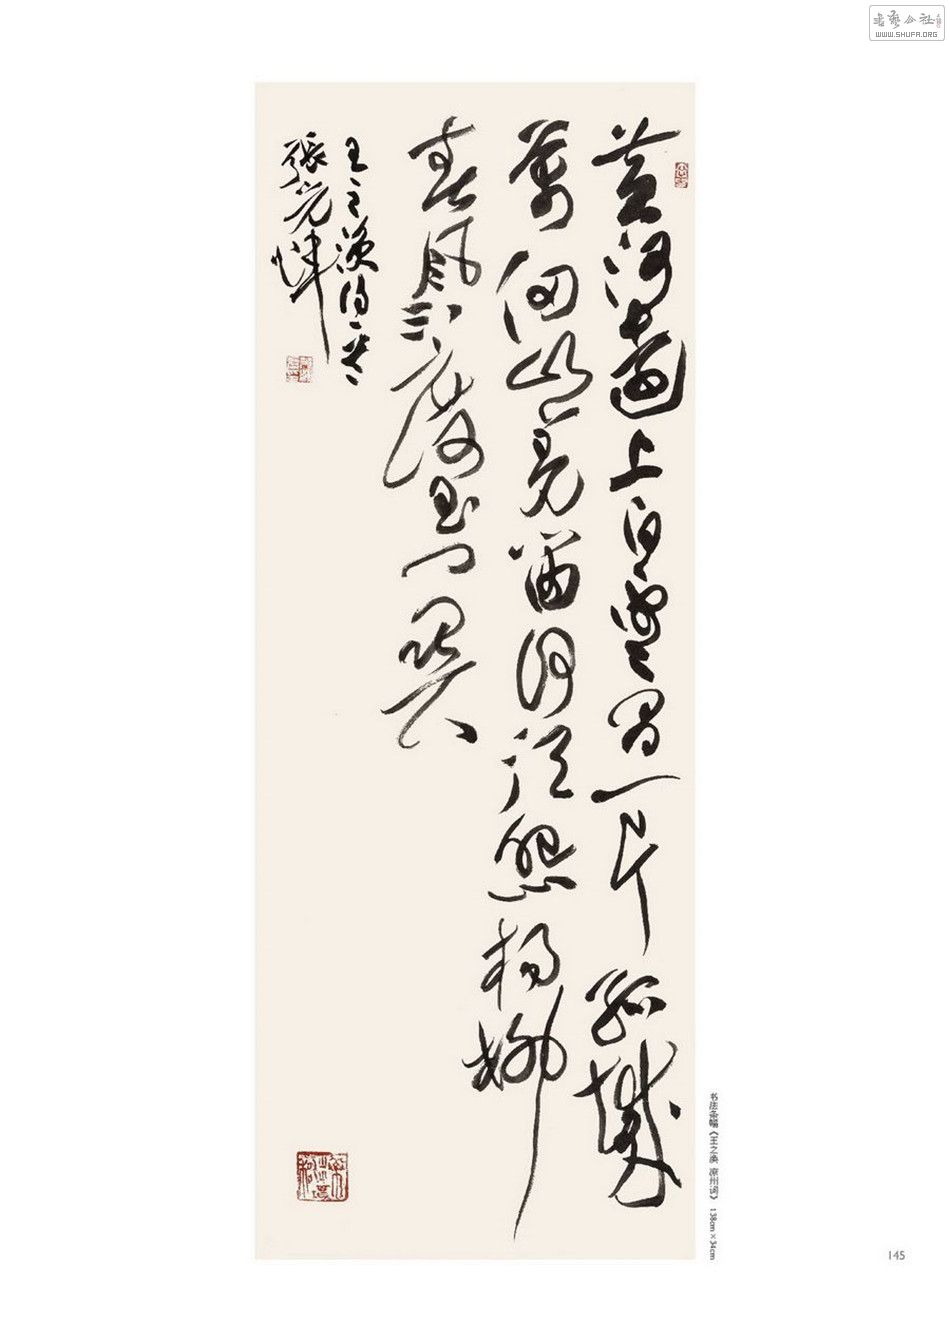 書藝公社
WWW.SHUFA.ORG
黄河遠上白雲間一片孤城
萬仞山羌笛何須怨楊柳
春風不度玉門關
王之渙詩
張
书法条幅《王之涣 凉州词》 138cm×34cm
145